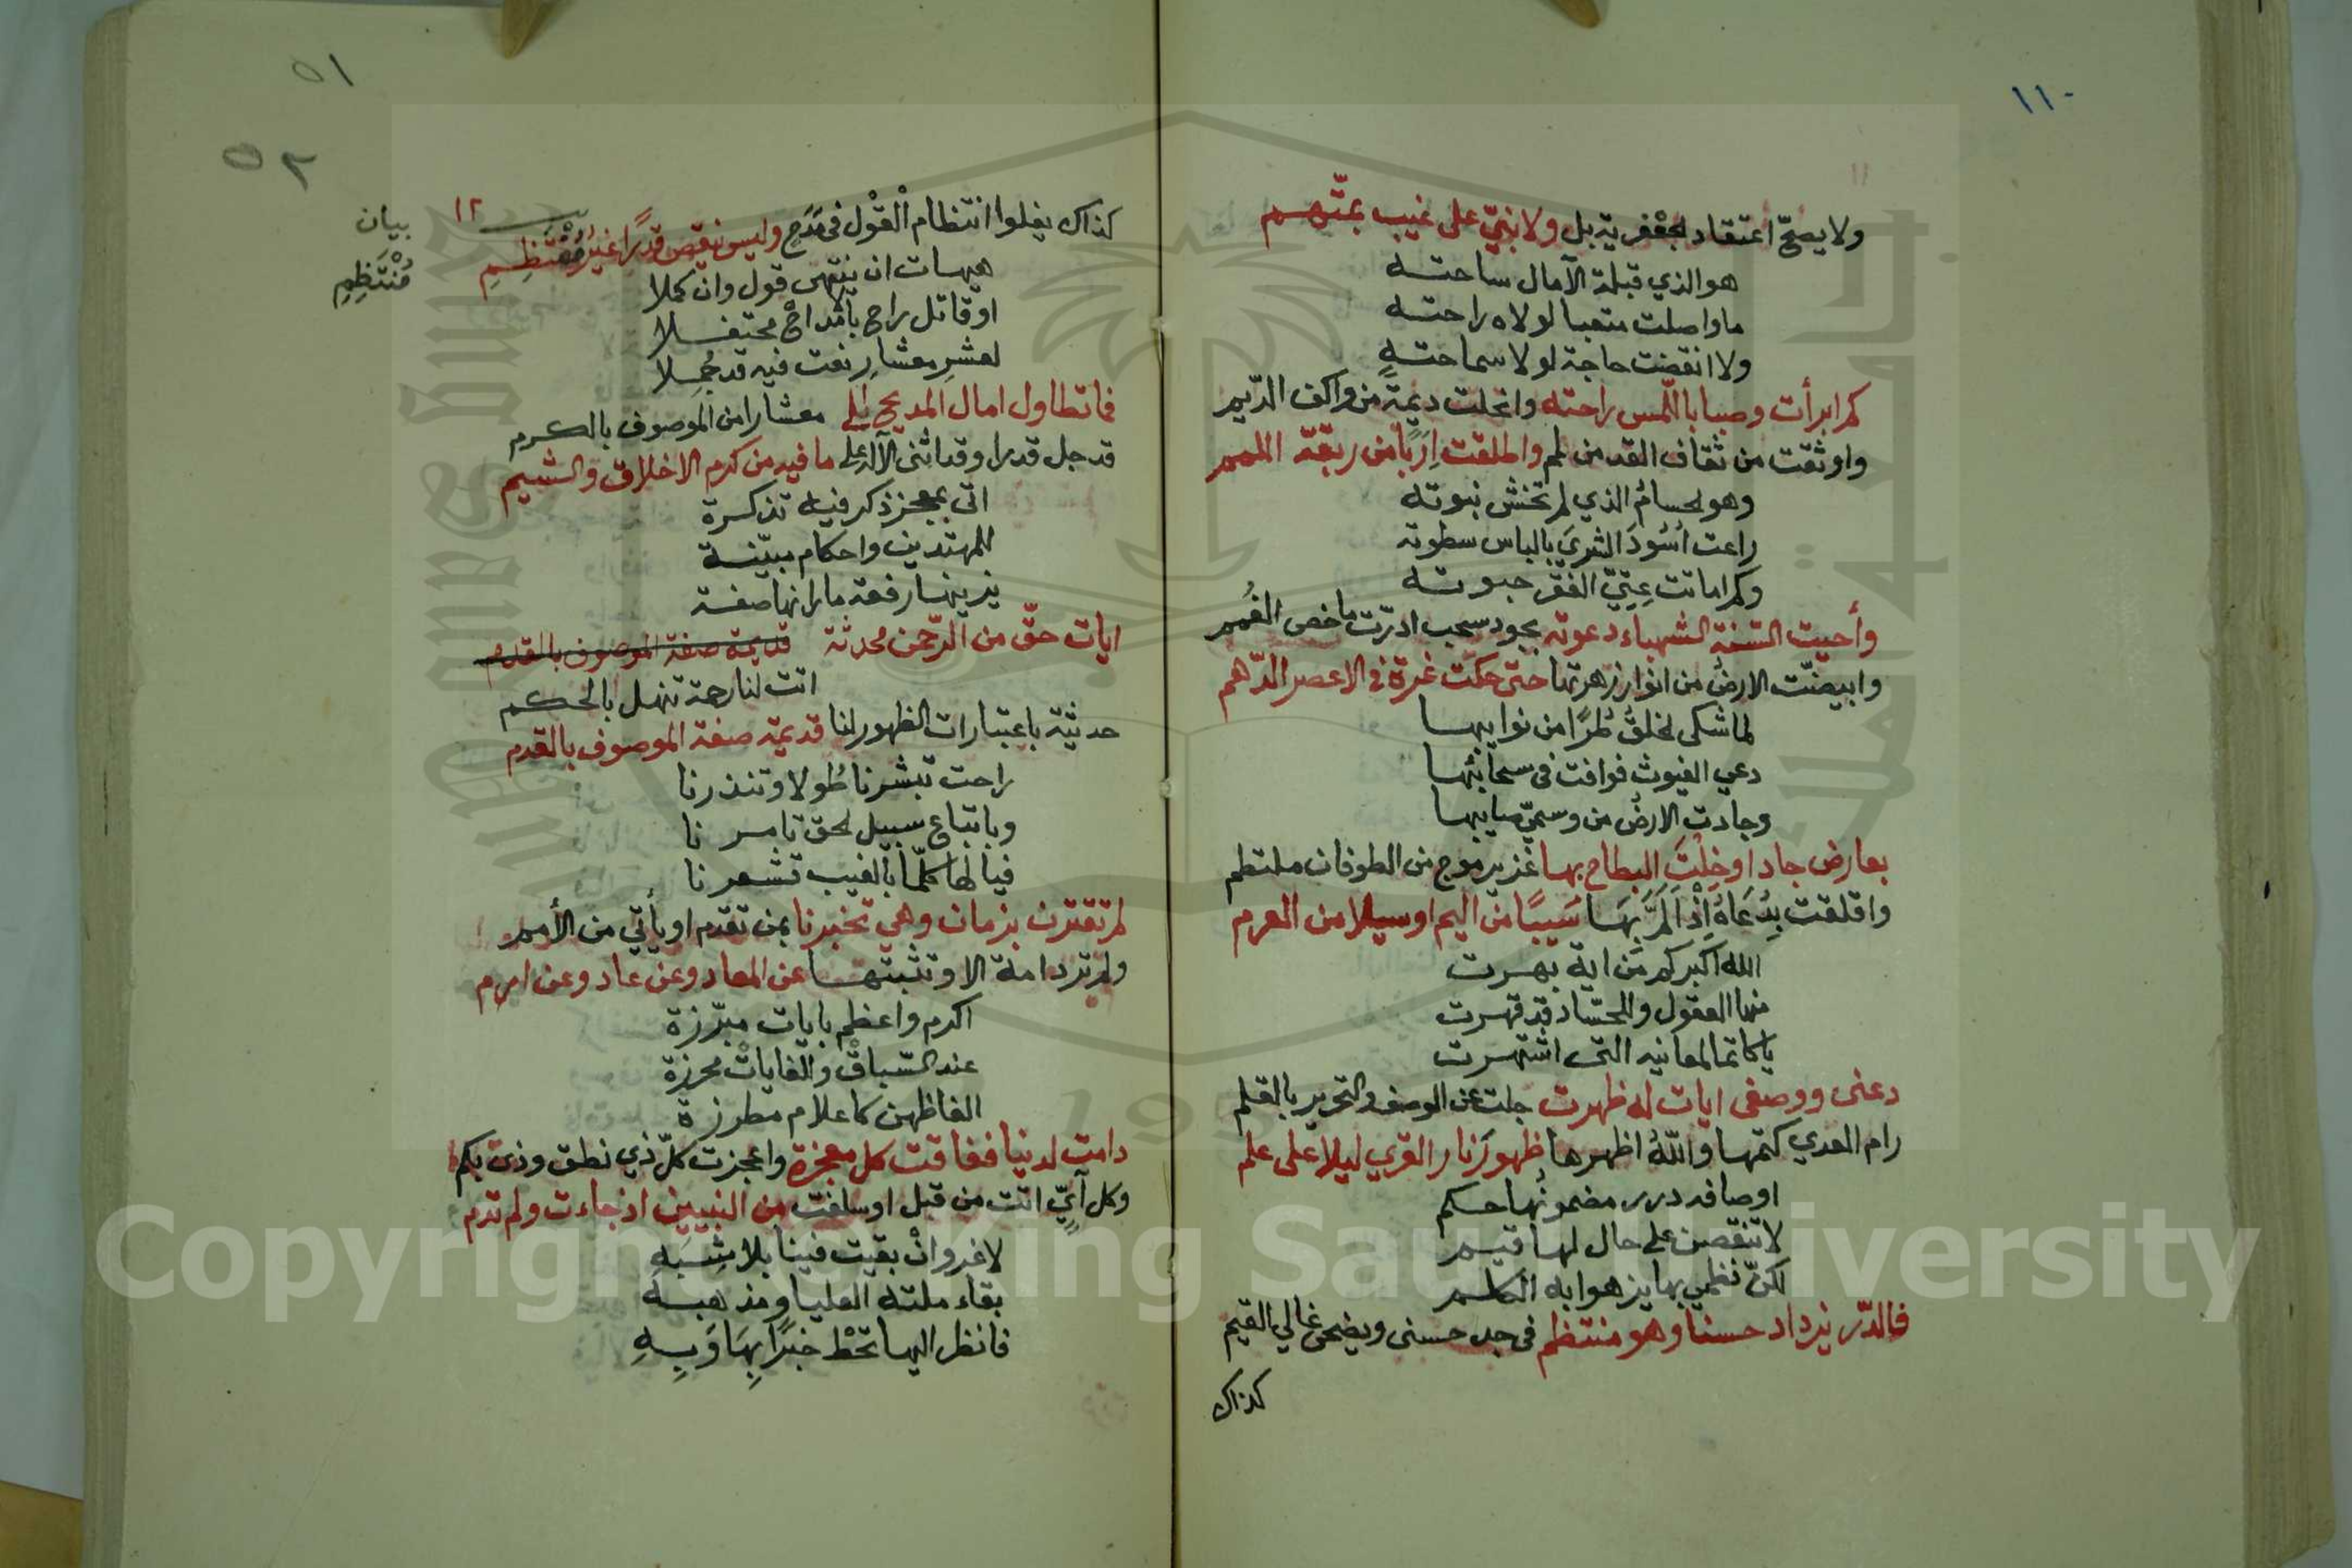 ١١٠
١١
ولا يصحّ اعتقاد لجعفرية بل ولا نبيّ على غيب بمتّهم
هو الذي قبلة الآمال ساحته
ما واصلت متعبا لولاه راحته
ولا انقضت حاجة لولا سماحتهٍ
كم ابرأت وصبا باللّمس راحته وانحلت ديمة من واكف الدّيم
واوثقت من ثقاف القد من لم واطلقت اِرَبًا من ربقة اللمم
وهو لحسامُ الذي لم تخش نبوته
راعت اُسُودَ الشريَ بالباس سطوته
وكم اماتت عِتِيّ الفقر حبوته
وأحيت السّنة الشهباء دعوته بجود سحب ادرّت ما خص الغُمم
وابيضّت الارضُ من انوار زهرتها حتى حكت غرة في الاعصر الدّهم
لما شكى لخلقُ طُرًا من نوايبها
دعي الغيوث فوافت في سحائبها
وجادت الارضُ من وسميّ صايبها
بعارض جاد اوخِلْتَ البطاح بها غزير موج من الطوفان ملتطم
واقلقت بِدُعَاهُ اِذْ اَلَمَّ بهَا سَيبًا من اليم او سيلا من العرم
الله اكبر كم مَن اية بهرت
منها العقول والحسّاد قد قهرت
يا كاتما لمعانيه التى اشتهرت
دعنى ووصفى ايات له ظهرت جلت عن الوصف والتحرير بالقلم
رام العدي كتمها واللّهُ اظهرها ظهورَ نار القري ليلا على علم
اوصافه درر مضمونُها حكم
لا تنقصن على حال لها قيم
لكنّ نظمي بها يزهوا به الكلم
فالدّر يزداد حسنا وهو منتظم فى جد حسنى ويضحى غالي القيم
كذاك
٥١
٥٢
١٢
كذاك يغلوا انتظام القوْل فى مَدَحٍ وليس ينقص قدرًا غيرُ مُنْتَظِمِ
بيان
مُنْتَظِمِ
هيهات ان ينتهى قول وان كملا
او قاتل راح بالامداح محتفلا
لعشرِ معشارِ نعت فيه قد جُمِلا
فما تطاول امال المديح إلى معشارا من الموصوف بالكرم
قد جل قدرا وقد اثنى الآله على ما فيه من كرم الاخلاق والشيم
اتى بمعجز ذكر فيه تذكرة
للمهتدين واحكام مبيّنة
يزينها رفعة ما رانها صفة
ايات حقّ من الرّحمن محدثة قديمة صفة الموصوف بالقدم
اتت لنا رحمة تنهل بالحكم
حديثية باعتبارات الظهور لنا قديمة صفة الموصوف بالقدم
راحت تبشرنا طُولا وتنذرنا
وباتباع سبيل لحق تامرنا
فيا لها كلّما بالغيب تشعرنا
لم تقترن بزمان وهي تخبرنا بمن تقدم او يأتي من الأمم
ولم ترد املة الا وتثبتها عن المعاد وعن عاد وعن ارم
اكرم واعظم بايات مبرّزة
عند السّباقْ والغاياتْ محرزة
الفاظهن كاعلام مطرزة
دامت لدنيا ففاقت كل معجزة واعجزت كلّ ذي نطق وذى بكم
وكل آيٍ اتت من قبل او سلفت من النبيين اذ جاءت ولم تدم
لاغرو انْ بقيت فينا بلا شبَهِ
بقاء ملته العليا ومذهبه
فانظر اليها تحْظ خبرًا بِهَا وَبِهِ